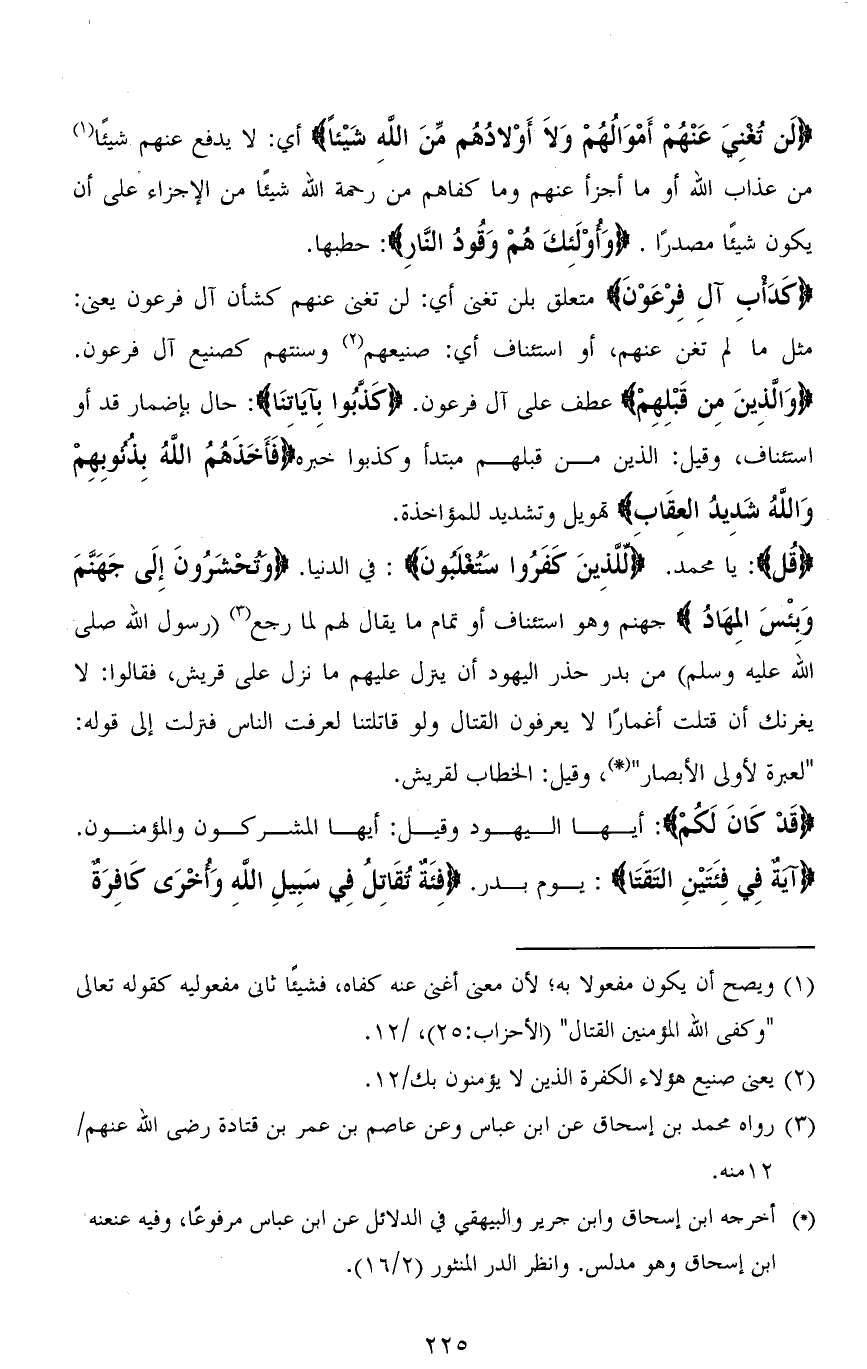 ﴿لَن تُغْنِيَ عَنْهُمْ أَمْوَالُهُمْ وَلاَ أَوْلادُهُم مِّنَ اللَّهِ شَيْئاً﴾ أي: لا يدفع عنهم شيئًا(١)
من عذاب الله أو ما أجزأ عنهم وما كفاهم من رحمة الله شيئًا من الإجزاء على أن
يكون شيئًا مصدرًا . ﴿وَأُوْلَئِكَ هُمْ وَقُودُ النَّارِ﴾: حطبها.
﴿كَدَأْبِ آلِ فِرْعَوْنَ﴾ متعلق بلن تغنى أي: لن تغنى عنهم كشأن آل فرعون يعنى:
مثل ما لم تغن عنهم، أو استئناف أي: صنيعهم(٢) وسنتهم كصنيع آل فرعون.
﴿وَالَّذِينَ مِن قَبْلِهِمْ﴾ عطف على آل فرعون. ﴿كَذَّبُوا بِآيَاتِنَا﴾: حال بإضمار قد أو
استئناف، وقيل: الذين مـن قبلهـم مبتدأ وكذبوا خبره﴿فَأَخَذَهُمُ اللَّهُ بِذُنُوبِهِمْ
وَاللَّهُ شَدِيدُ العِقَابِ﴾ تهويل وتشديد للمؤاخذة.
﴿قُل﴾: يا محمد. ﴿لِّلَّذِينَ كَفَرُوا سَتُغْلَبُونَ﴾ : في الدنيا. ﴿وَتُحْشَرُونَ إِلَى جَهَنَّمَ
وَبِئْسَ المِهَادُ ﴾ جهنم وهو استئناف أو تمام ما يقال لهم لما رجع(٣) (رسول الله صلى
الله عليه وسلم) من بدر حذر اليهود أن ينزل عليهم ما نزل على قريش، فقالوا: لا
يغرنك أن قتلت أغمارًا لا يعرفون القتال ولو قاتلتنا لعرفت الناس فنزلت إلى قوله:
"لعبرة لأولى الأبصار"(*)، وقيل: الخطاب لقريش.
﴿قَدْ كَانَ لَكُمْ﴾: أيـهـا الـيـهود وقيـل: أيهـا المشـركـون والمؤمنـون.
﴿آيَةٌ فِي فِئَتَيْنِ التَقَتَا﴾ : يـوم بـدر. ﴿فِئَةٌ تُقَاتِلُ فِي سَبِيلِ اللَّهِ وَأُخْرَى كَافِرَةٌ
(١) ويصح أن يكون مفعولا به؛ لأن معنى أغنى عنه كفاه، فشيئًا ثانى مفعوليه كقوله تعالى
"وكفى الله المؤمنين القتال" (الأحزاب:٢٥)، /١٢.
(٢) يعنى صنيع هؤلاء الكفرة الذين لا يؤمنون بك/١٢.
(٣) رواه محمد بن إسحاق عن ابن عباس وعن عاصم بن عمر بن قتادة رضى الله عنهم/
١٢منه.
(*) أخرجه ابن إسحاق وابن جرير والبيهقي في الدلائل عن ابن عباس مرفوعًا، وفيه عنعنه
ابن إسحاق وهو مدلس. وانظر الدر المنثور (١٦/٢).
٢٢٥